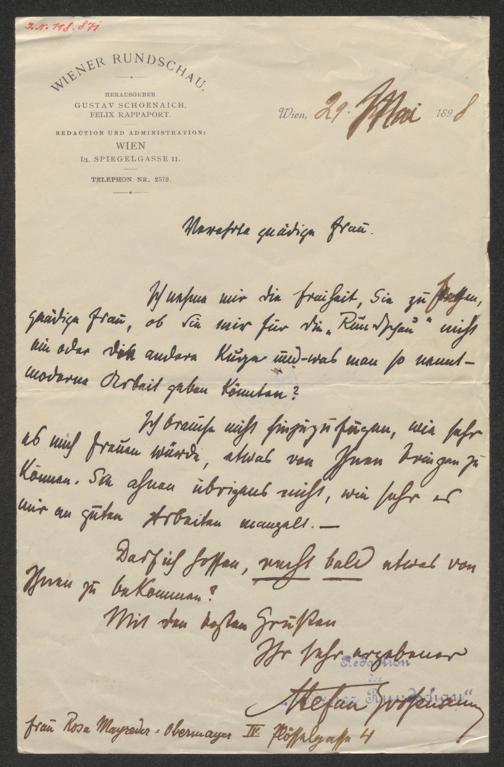 J.N. 118.871
WIENER RUNDSCHAU.
HERAUSGEBER
GUSTAV SCHOENAICH,
FELIX RAPPAPORT.
REDACTION UND ADMINISTRATION:
WIEN
I/1. SPIEGELGASSE 11.
TELEPHON NR. 2572.
Wien, 29. Mai 1898
Verehrte gnädige Frau.
Ich nehme mir die Freiheit, Sie zu fragen,
gnädige Frau, ob Sie mir für die „Rundschau" nicht
ein oder die andere kurze und – was man so nennt –
moderne Arbeit geben könnten?
Ich brauche nicht hinzuzufügen, wie sehr
es mich freuen würde, etwas von Ihnen bringen zu
können. Sie ahnen übrigens nicht, wie sehr es
mir an guten Arbeiten mangelt. —
Darf ich hoffen, recht bald etwas von
Ihnen zu bekommen?
Mit den besten Grüßen
Ihr sehr ergebener
Redaction
der
„Wiener Rundschau"
Stefan Großmann
Frau Rosa Mayreder-Obermayer IV. Plösslgasse 4